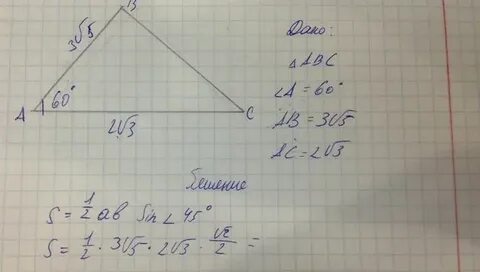 B
3√5
60°
A
C
2√3
Дано:
△ABC
∠A = 60°
AB = 3√5
AC = 2√3
Решение
S = 1/2 ab Sin∠45°
S = 1/2 · 3√5 · 2√3 · √2/2 =